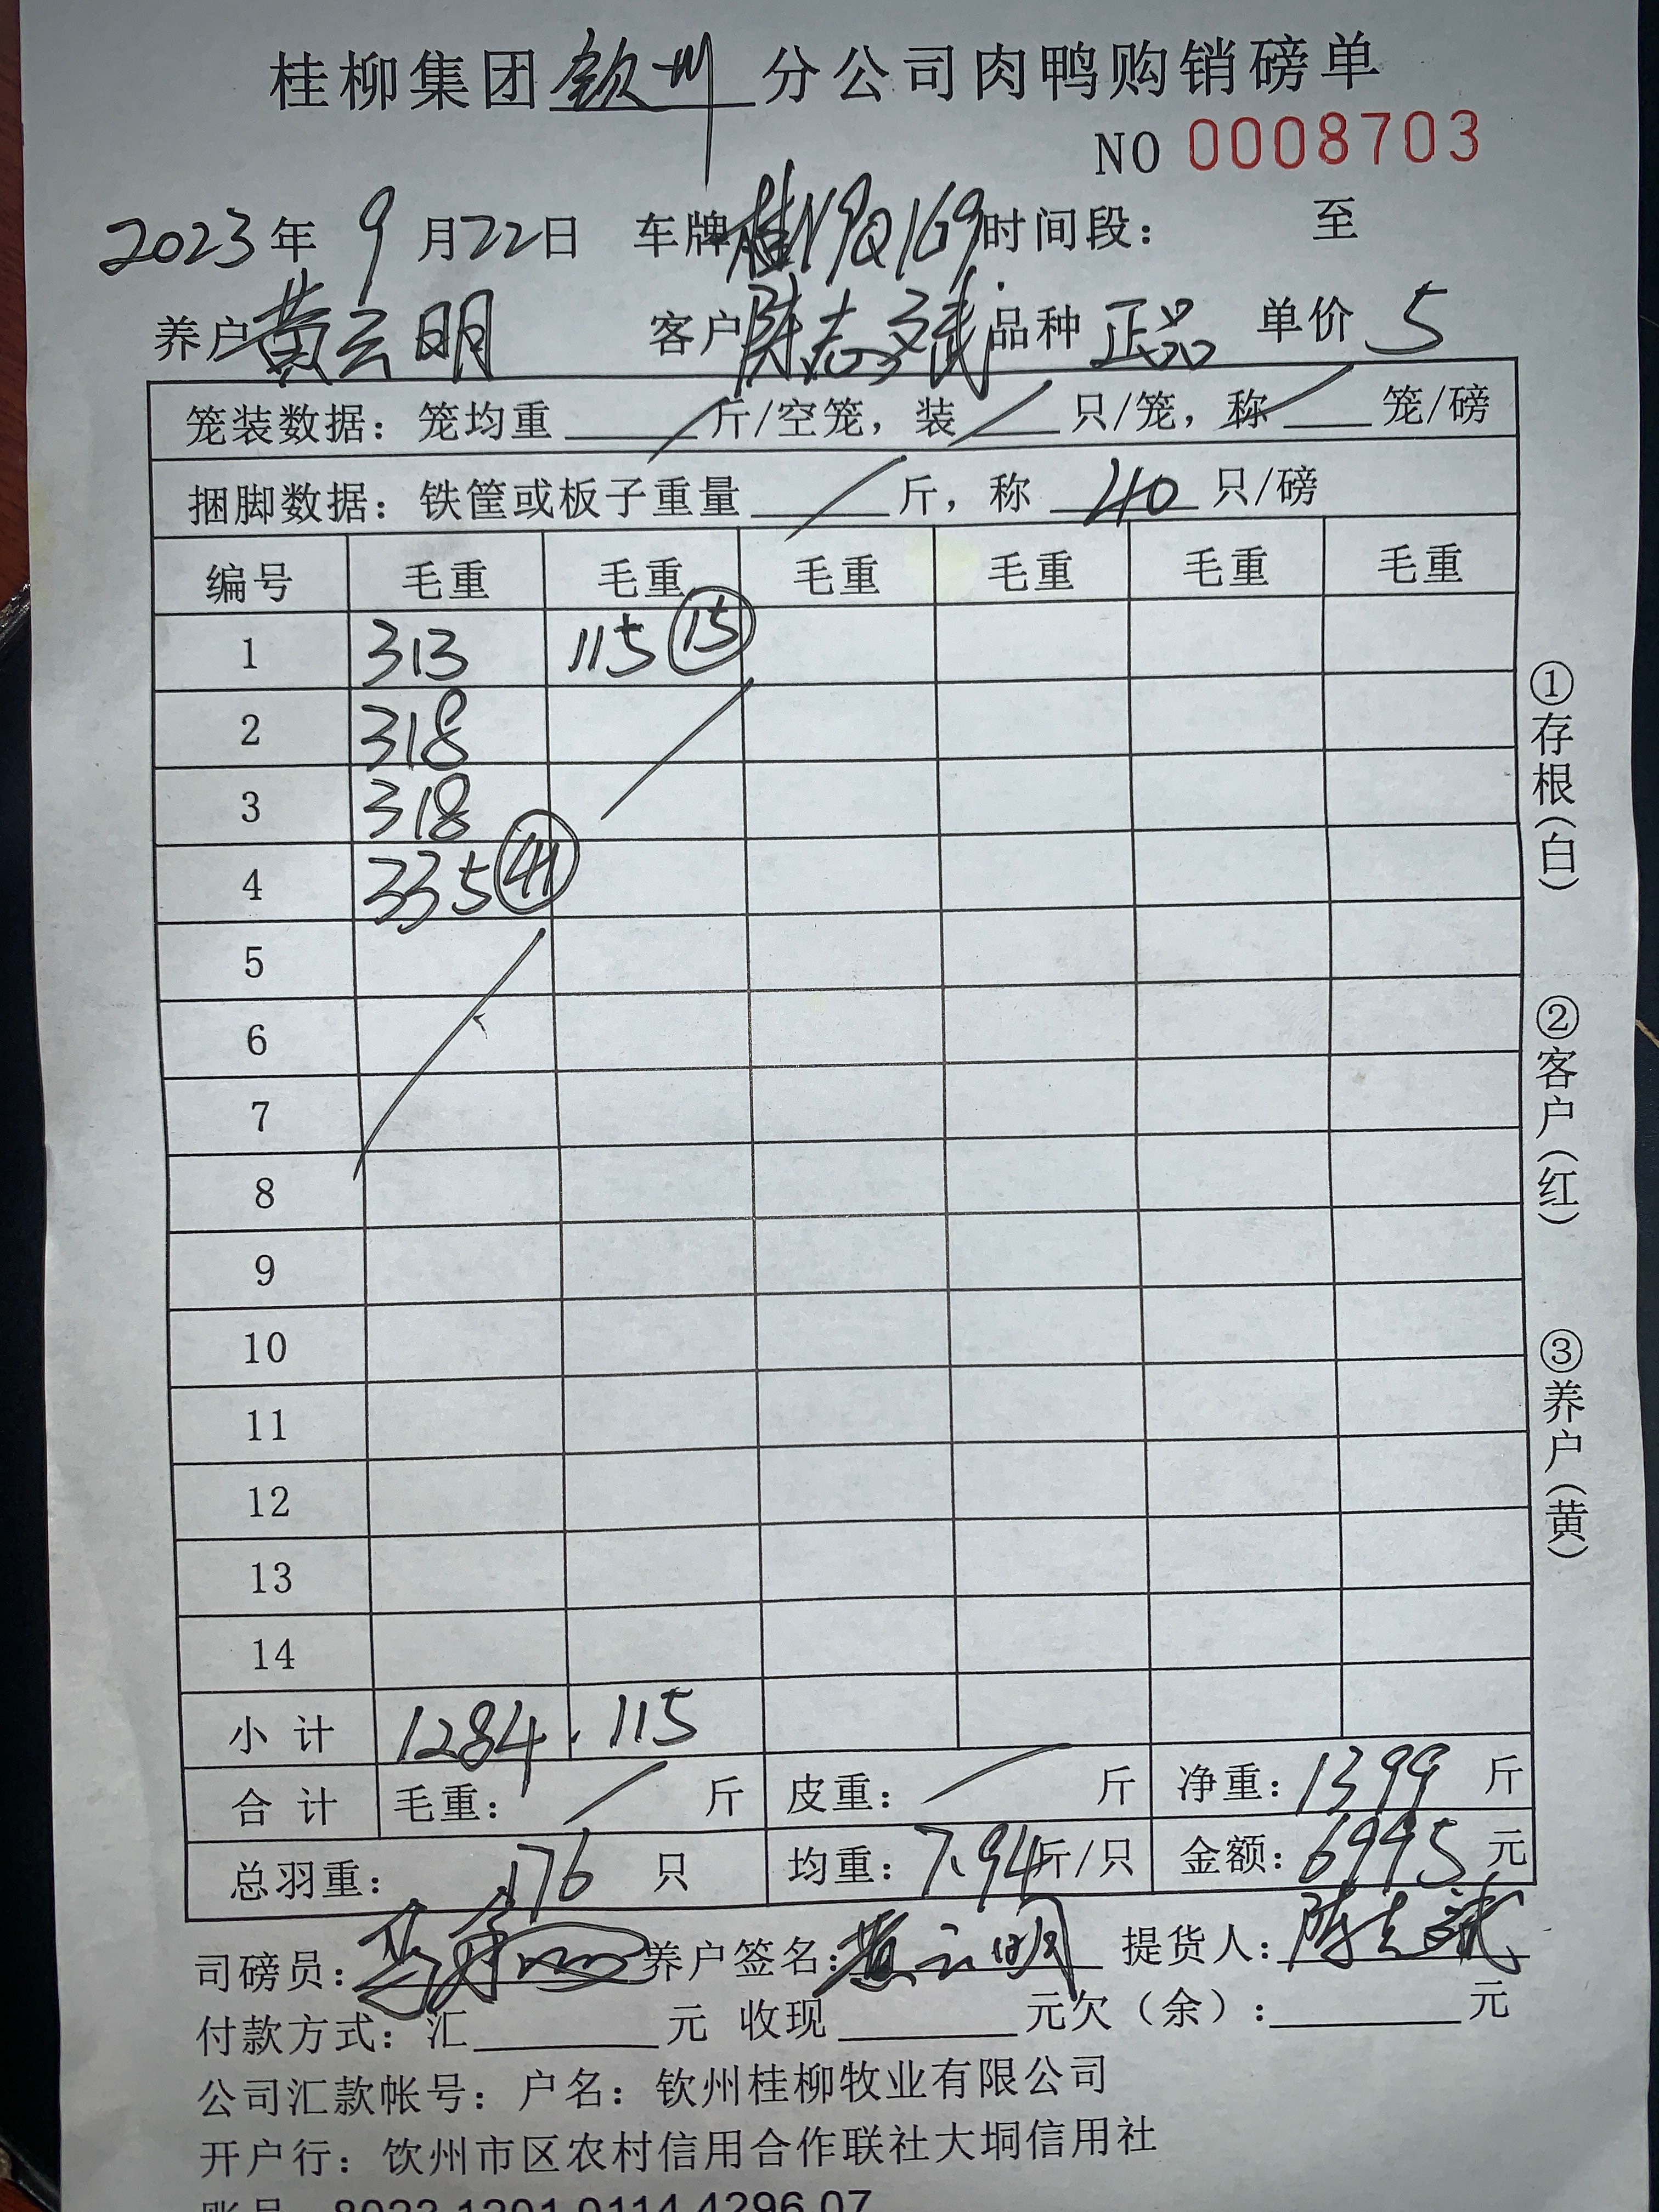 桂柳集团 钦州 分公司肉鸭购销磅单
NO 0008703
2023年 9月22日 车牌桂N9Q169时间段： 至
养户黄云明 客户陈志斌 品种 正品 单价 5
笼装数据：笼均重 / 斤/空笼，装 / 只/笼，称 / 笼/磅
捆脚数据：铁筐或板子重量 / 斤，称 40 只/磅
编号 毛重 毛重 毛重 毛重 毛重 毛重
1 313 115 ⑮
2 318
3 318
4 335 ㊶
5
6
7
8
9
10
11
12
13
14
小计 1284 115
合计 毛重： / 斤 皮重： / 斤 净重：1399 斤
总羽重： 176 只 均重：7.94斤/只 金额：6995元
司磅员： 养户签名：黄云明 提货人：陈志斌
付款方式：汇______元 收现______元欠（余）：______元
公司汇款帐号：户名：钦州桂柳牧业有限公司
开户行：饮州市区农村信用合作联社大垌信用社
账号 8023 1201 0114 4296 07
①存根（白）
②客户（红）
③养户（黄）